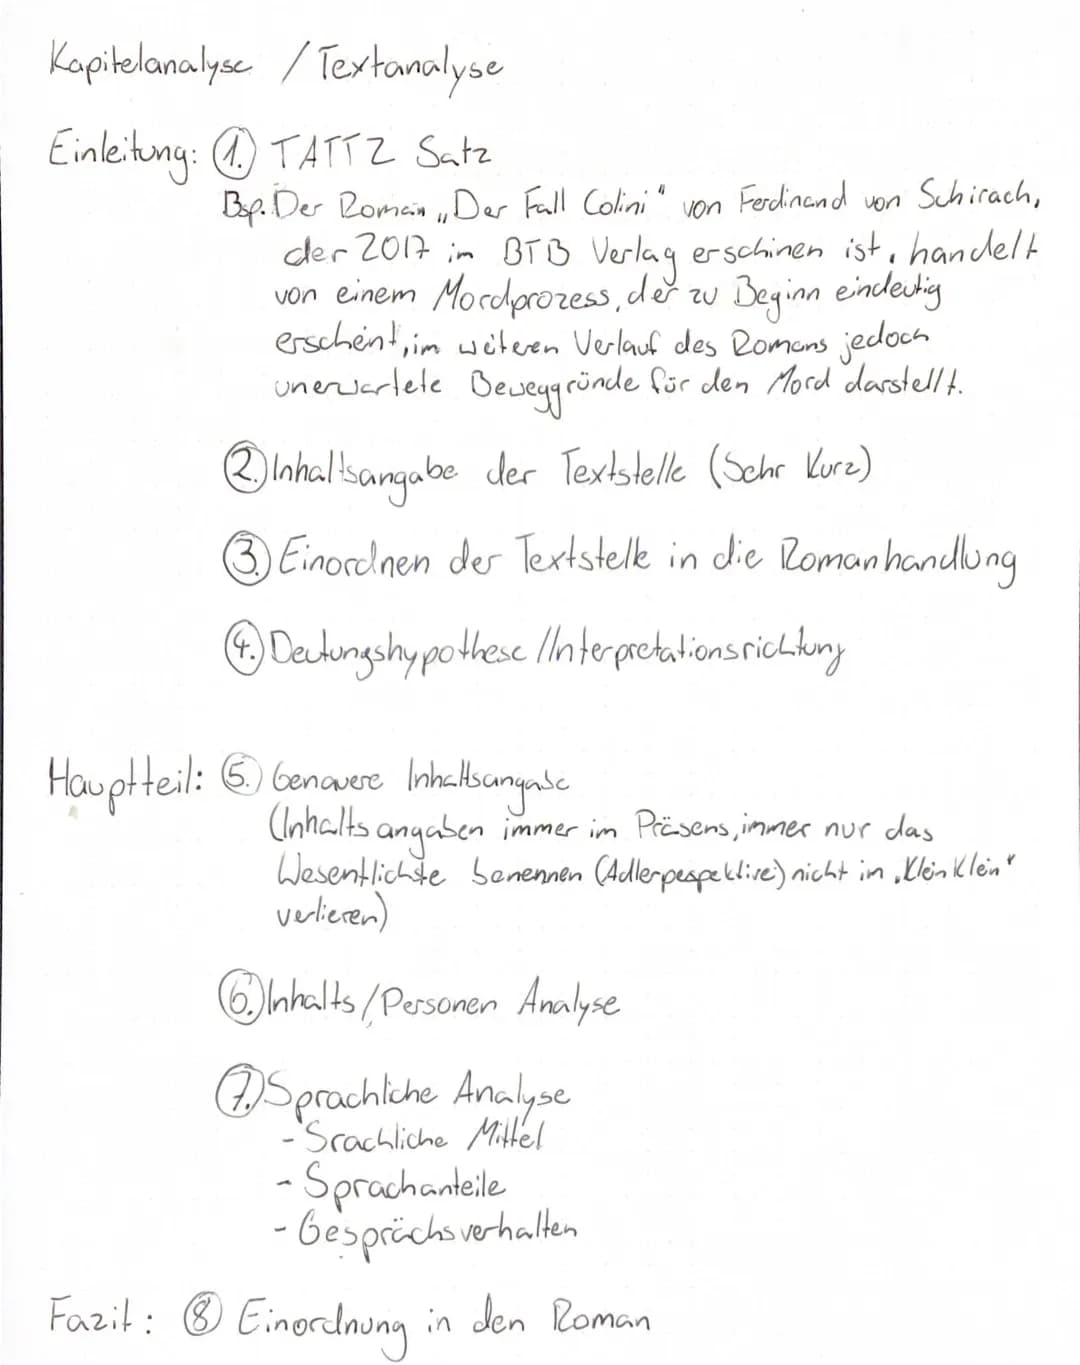 Kapitelanalyse / Textanalyse
Einleitung: 1. TATTZ Satz
Bsp. Der Roman „Der Fall Colini" von Ferdinand von Schirach,
der 2017 im BTB Verlag erschinen ist, handelt
von einem Mordprozess, der zu Beginn eindeutig
erscheint, im weiteren Verlauf des Romans jedoch
unerwartete Beweggründe für den Mord darstellt.
2. Inhaltsangabe der Textstelle (Sehr Kurz)
3. Einordnen der Textstelle in die Romanhandlung
4. Deutungshypothese /Interpretationsrichtung
Hauptteil: 5. Genauere Inhaltsangabe
(Inhaltsangaben immer im Präsens, immer nur das
Wesentlichste benennen (Adlerpespektive) nicht in „Klein Klein"
verlieren)
6. Inhalts/Personen Analyse
7. Sprachliche Analyse
- Srachliche Mittel
- Sprachanteile
- Gesprächsverhalten
Fazit: 8 Einordnung in den Roman